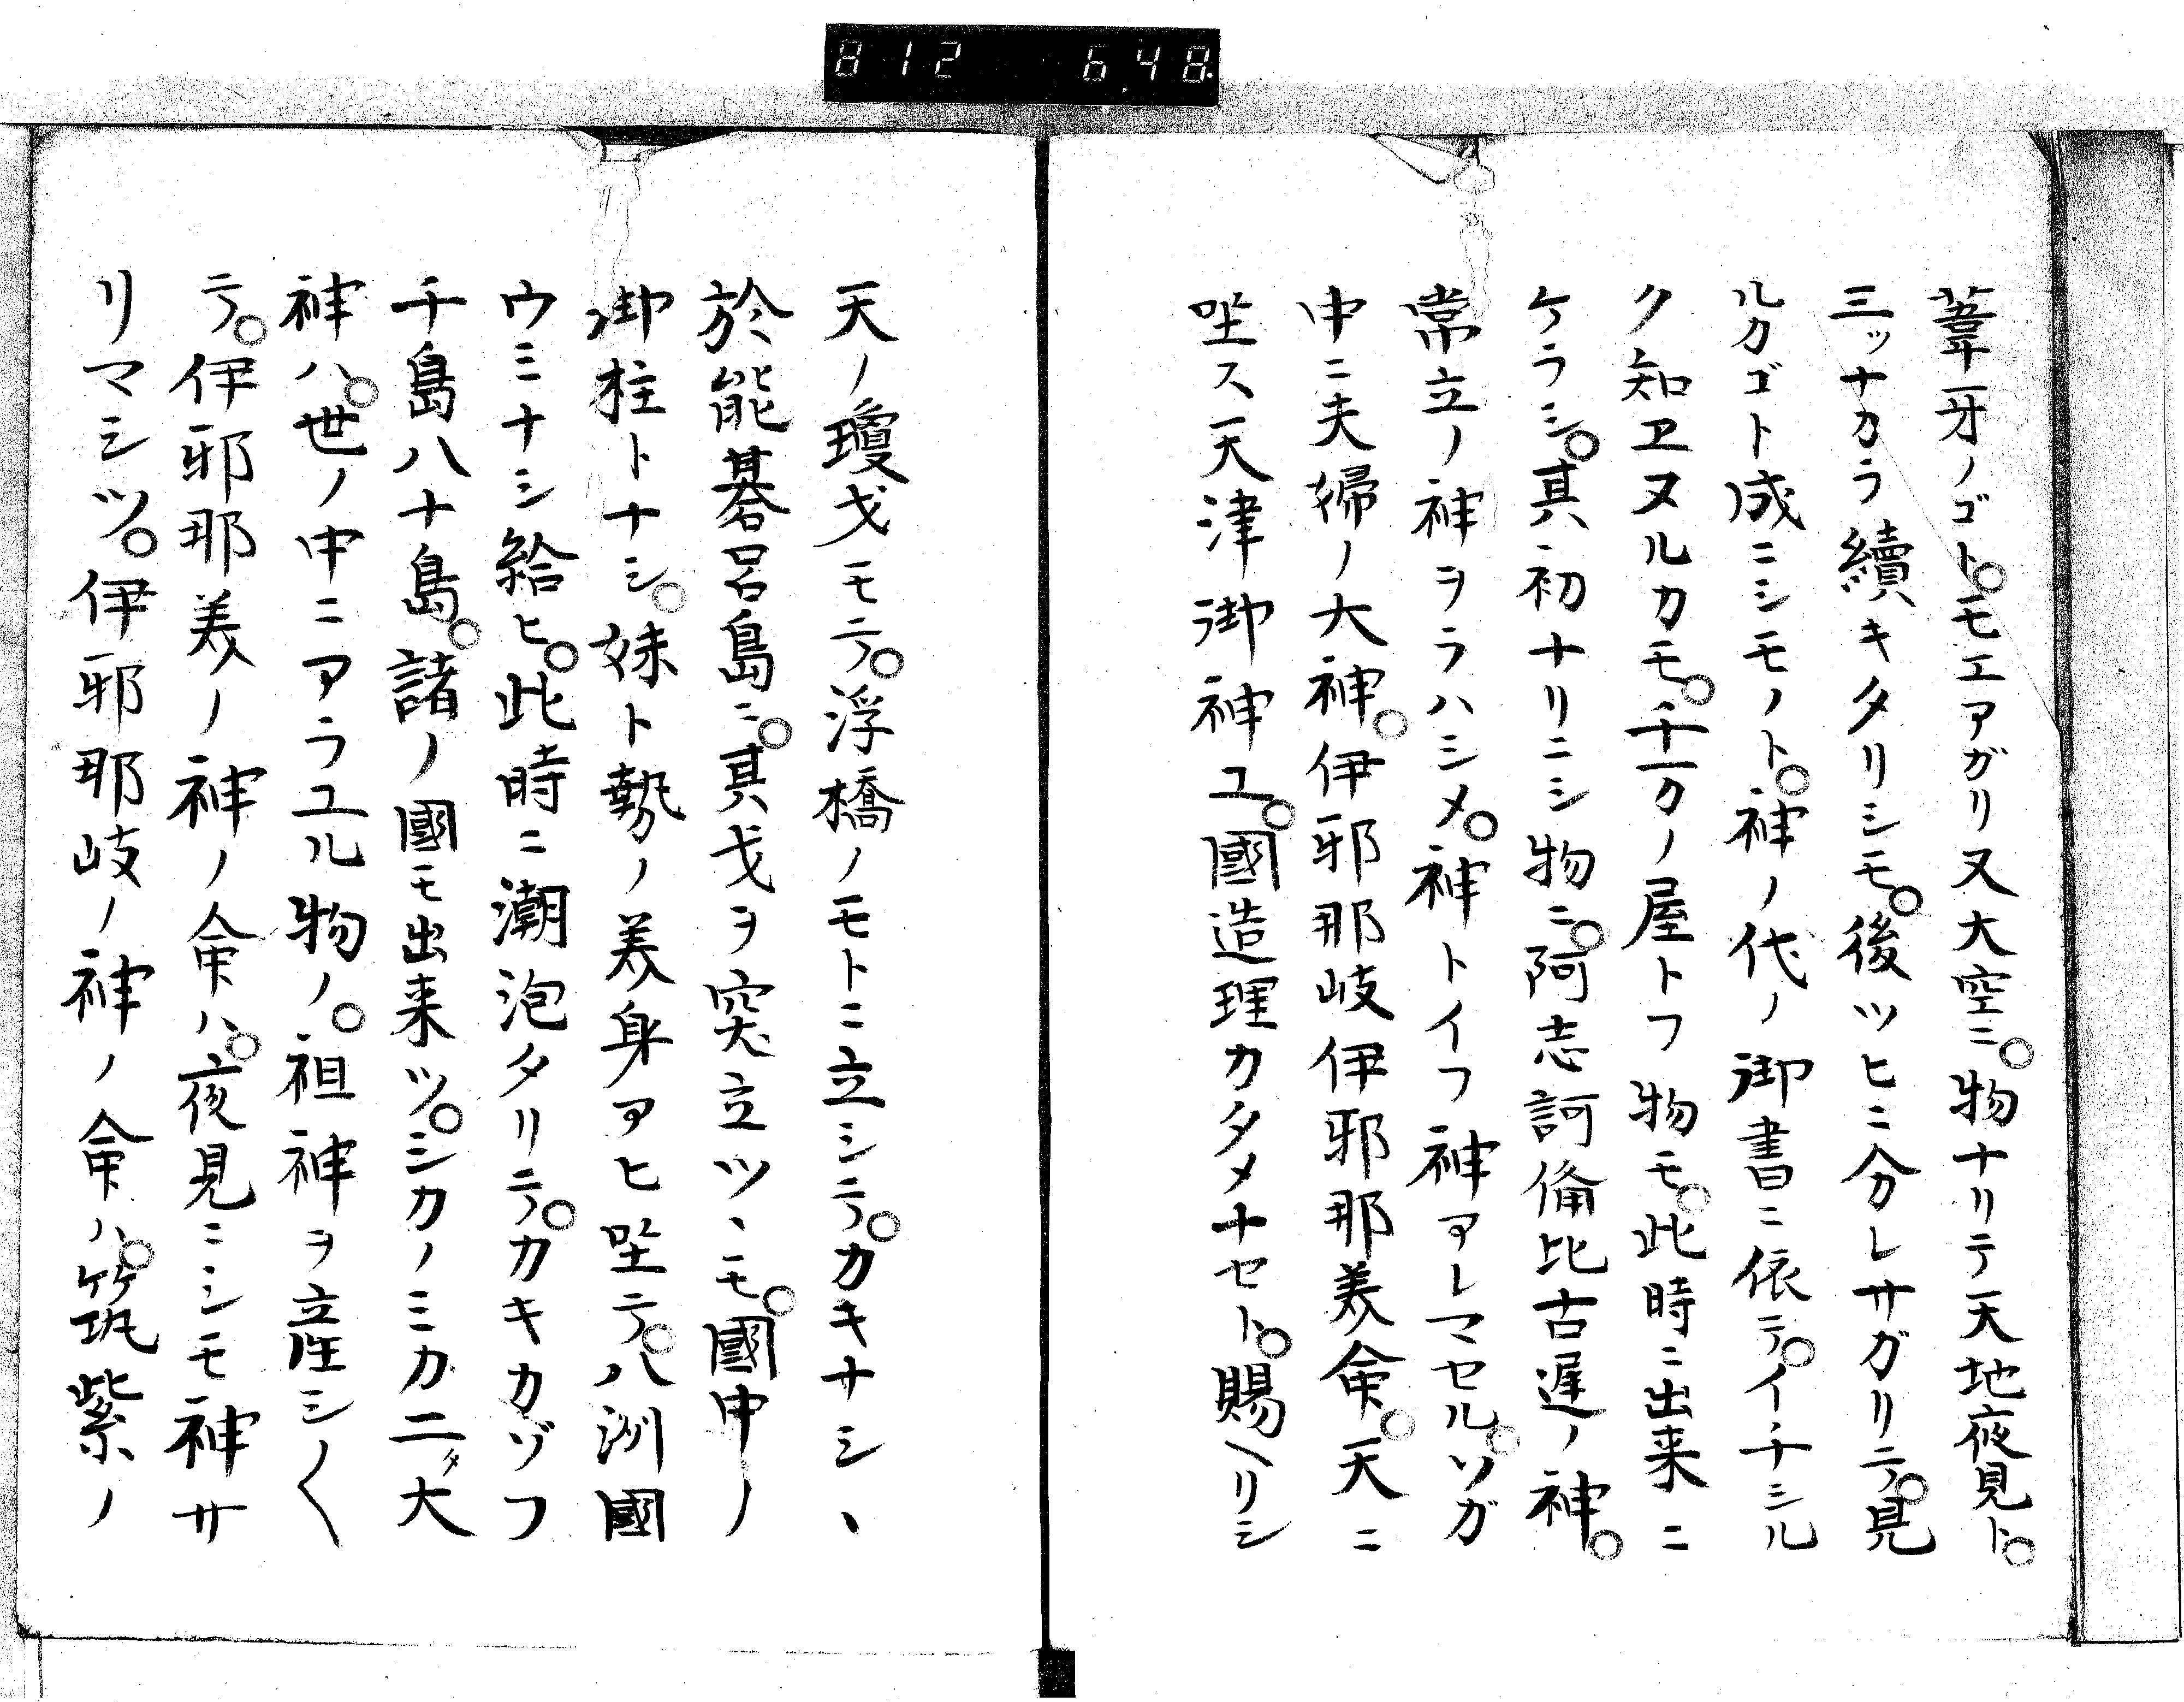 812 648.
葦牙ノゴト。モエアガリ又大空ニ。物ナリテ天地夜見ト。
三ッナカラ續キタリシモ。後ツヒニ分レサガリテ。見
ルカゴト成ニシモノト。神ノ代ノ御書ニ依テ。イチシル
ク知ヱヌルカモ。千万ノ屋トフ物モ。此時ニ出来ニ
ケラシ。其初ナリニシ物ニ。阿志訶備比古遅ノ神。
常立ノ神ヲラハシメ。神トイフ神アレマセル。ソガ
中ニ夫婦ノ大神。伊邪那岐伊邪那美命。天ニ
坐ス天津御神ユ。國造理カタメナセト。賜ヘリシ
天ノ瓊戈モテ。浮橋ノモトニ立シテ。カキナシヽ
於能碁呂島ニ。其戈ヲ突立ツヽモ。國中ノ
御柱トナシ。妹ト勢ノ美身アヒ坐テ。八洲國
ウミナシ給ヒ。此時ニ潮泡タリテ。カキカゾフ
千島八十島。諸ノ國モ出来ツ。シカノミカ二タ大
神ハ。世ノ中ニアラユル物ノ。祖神ヲ産シ〳〵
テ。伊邪那美ノ神ノ命ハ。夜見ニシモ神サ
リマシツ。伊邪那岐ノ神ノ命ハ。筑紫ノ